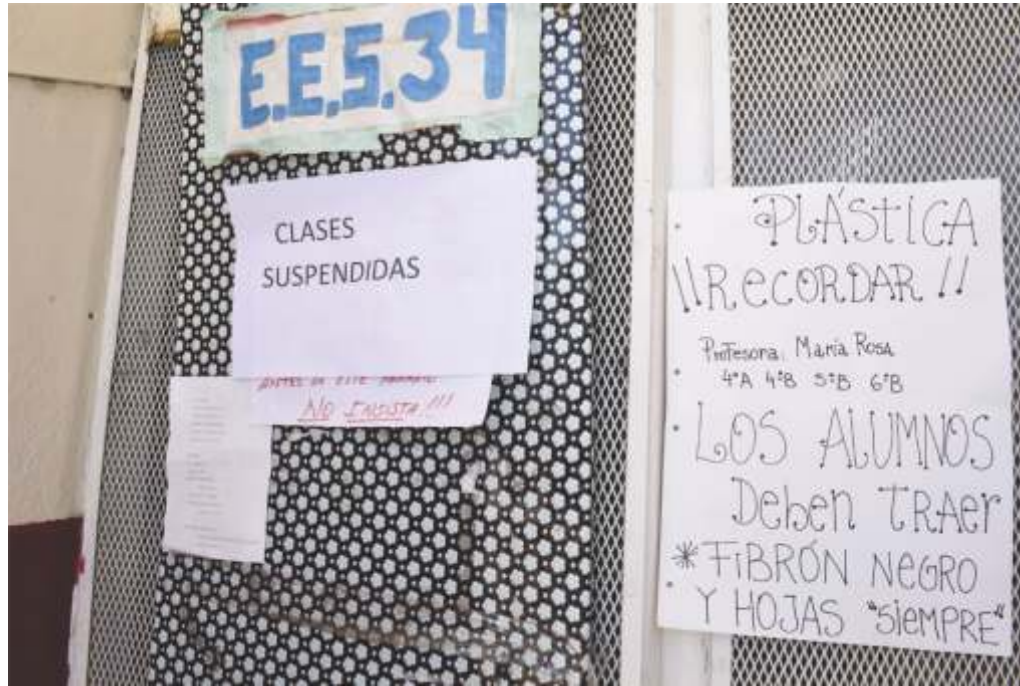 E.E.S.34
CLASES
SUSPENDIDAS
NO INSISTA!!!
PLÁSTICA
!!RECORDAR!!
Profesora María Rosa
4°A 4°B 5°B 6°B
LOS ALUMNOS
Deben TRAer
*FIBRÓN NEGRO
Y HOJAS "SIEMPRE"